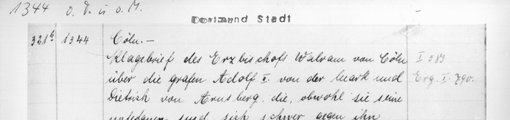 1344 o. T. u. o. M.
Dortmund Stadt
321b 1344 Cöln.—
Klagebrief des Erzbischofs Walram von Cöln I 383
über die grafen Adolf I. von der Mark und Erg. I 790.
Dietrich von Arnsberg, die, obwohl sie seine
untertanen sind sich schwer gegen ihn